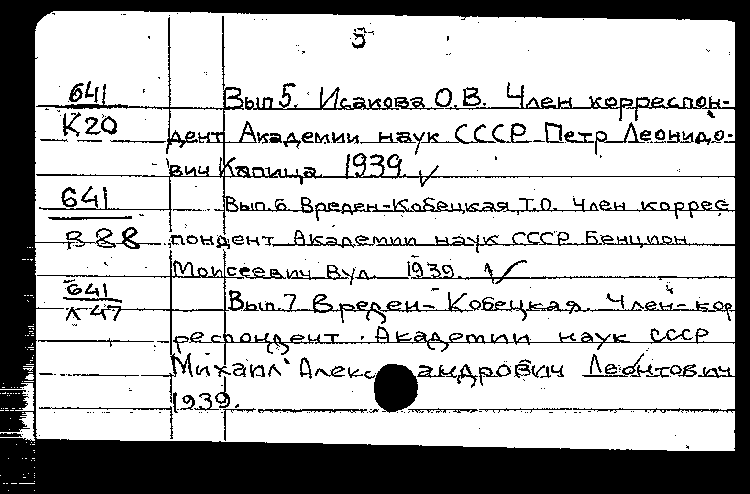 3
641 Вып 5. Исакова О.В. Член корреспон-
К20 дент Академии наук СССР Петр Леонидо-
вич Капица 1939
641 Вып.6 Вреден-Кобецкая,Т.О. Член коррес
В 88 пондент Академии наук СССР Бенцион
Моисеевич Вул. 1939.
641 Вып.7 Вреден-Кобецкая. Член-кор
Л 47 респондент Академии наук СССР
Михаил Александрович Леонтович
1939.